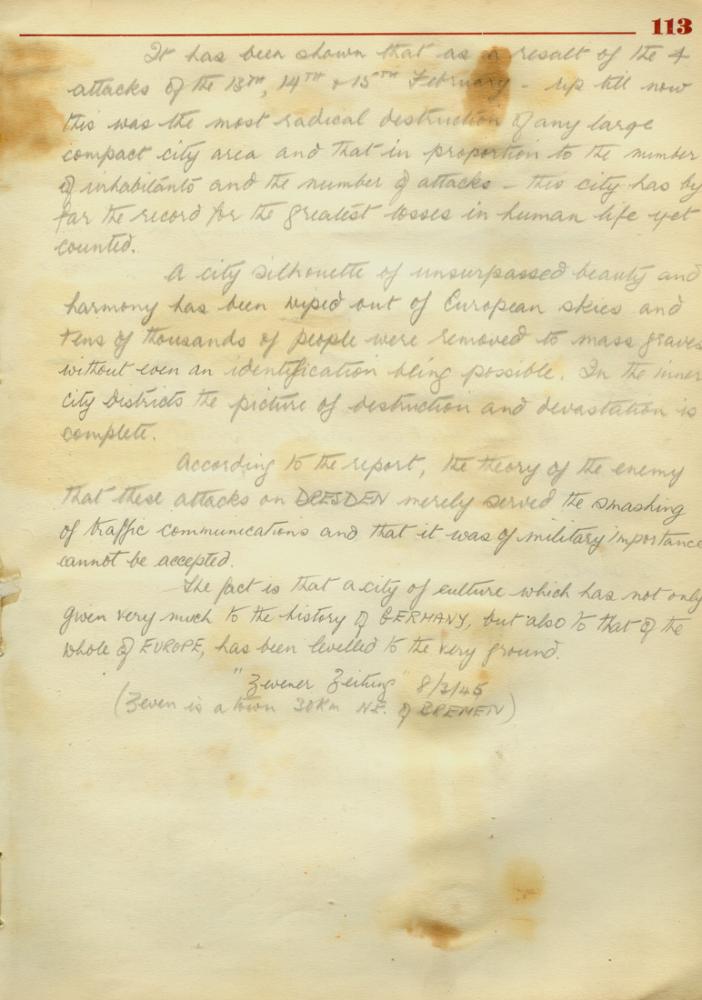 113
It has been shown that as a result of the 4
attacks of the 13TH, 14TH & 15TH February - up till now
this was the most radical destruction of any large
compact city area and that in proportion to the number
of inhabitants and the number of attacks - this city has by
far the record for the greatest losses in human life yet
counted.
A city silhouette of unsurpassed beauty and
harmony has been wiped out of European skies and
tens of thousands of people were removed to mass graves
without even an identification being possible. In the inner
city districts the picture of destruction and devastation is
complete.
According to the report, the theory of the enemy
that these attacks on DRESDEN merely served the smashing
of traffic communications and that it was of military importance
cannot be accepted.
The fact is that a city of culture which has not only
given very much to the history of GERMANY, but also to that of the
whole of EUROPE, has been levelled to the very ground.
"Zevener Zeitung" 8/3/45
(Zeven is a town 30Km N.E. of BREMEN)